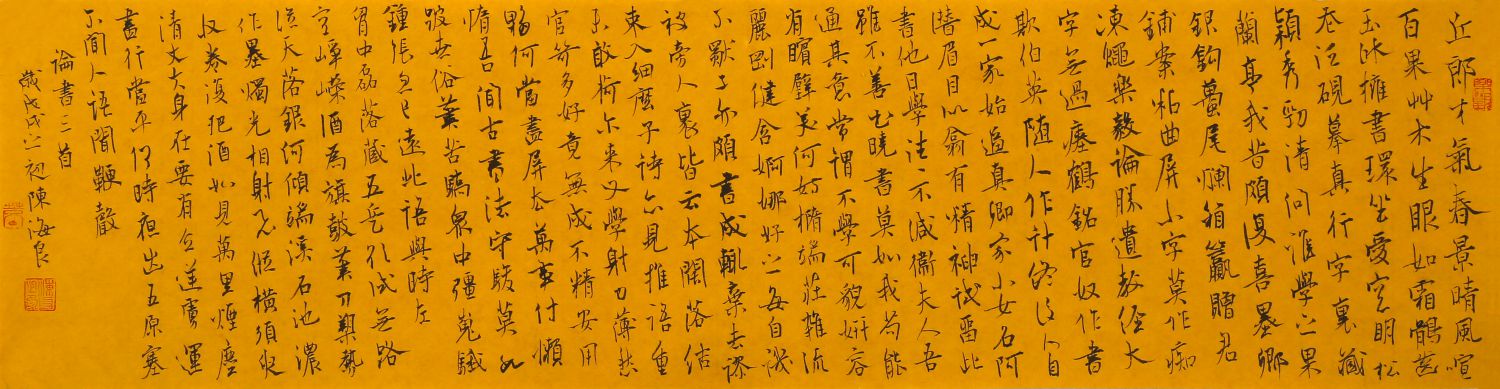 丘郎才氣春景晴風喧
百果艸木生眼如霜鶻齒
玉冰擁書環坐愛窗明松
花泛硯摹真行字裏藏
穎秀勁清問誰學之果
蘭亭我昔頗復喜墨卿
銀鉤蠆尾爛箱籯贈君
鋪案粘曲屏小字莫作痴
凍蠅樂毅論勝遺教經大
字無過瘞鶴銘官奴作書
欺伯英隨人作計終後人自
成一家始逼真卿家小女名阿
潛眉目似翁有精神試留此
書他日學往往不減衛夫人吾
雖不善書曉書莫如我苟能
通其意常謂不學可貌妍容
有矉璧美何妨橢端莊雜流
麗剛健含婀娜好之每自譏
不獸子亦頗書成輒棄去謬
被旁人裹皆云本闊落結
束入細麼子詩亦見推語重
未敢荷尔來又學射力薄愁
官笴多好竟無成不精安用
夥何當盡屏去萬事付懶
惰吾聞古書法守駿莫如
跛世俗筆苦驕眾中強嵬騀
鍾張忽已遠此語與時左
胸中磊落藏五兵欲試無路
空崢嶸酒為旗鼓筆刀槊勢
從天落銀河傾端溪石池濃
作墨燭光相射飛縱橫須臾
收卷復把酒如見萬里煙塵
清丈夫身在要有立逆虜運
盡行當平何時夜出五原塞
不聞人語聞鞭聲
論書三首
歲戊戌之初陳海良